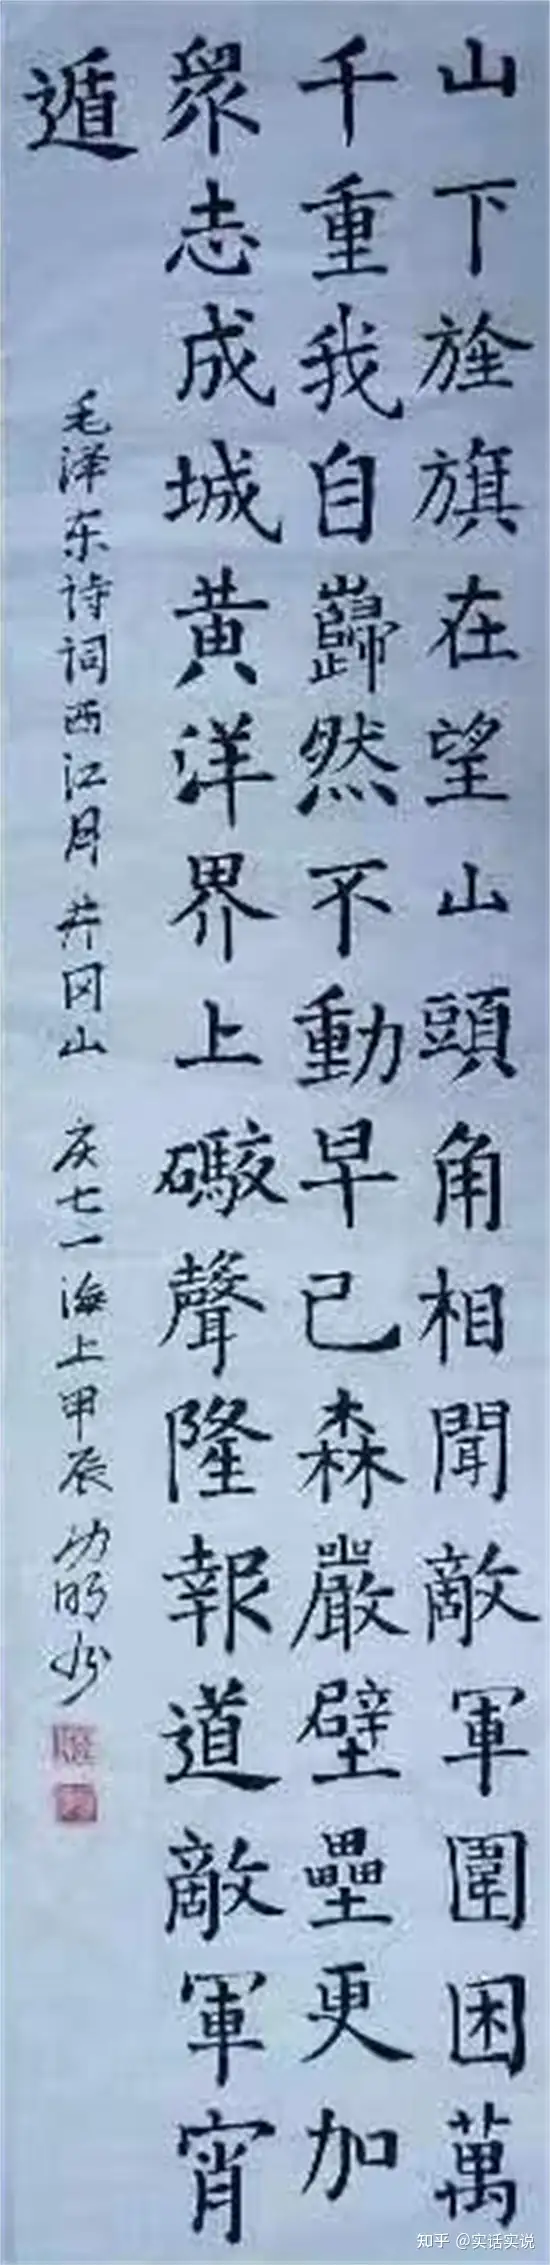 山下旌旗在望山頭角相聞敵軍圍困萬
千重我自巋然不動早已森嚴壁壘更加
眾志成城黄洋界上礮聲隆報道敵軍宵
遁
毛泽东诗词西江月 井冈山 庆七一海上甲辰
知乎 @实话实说